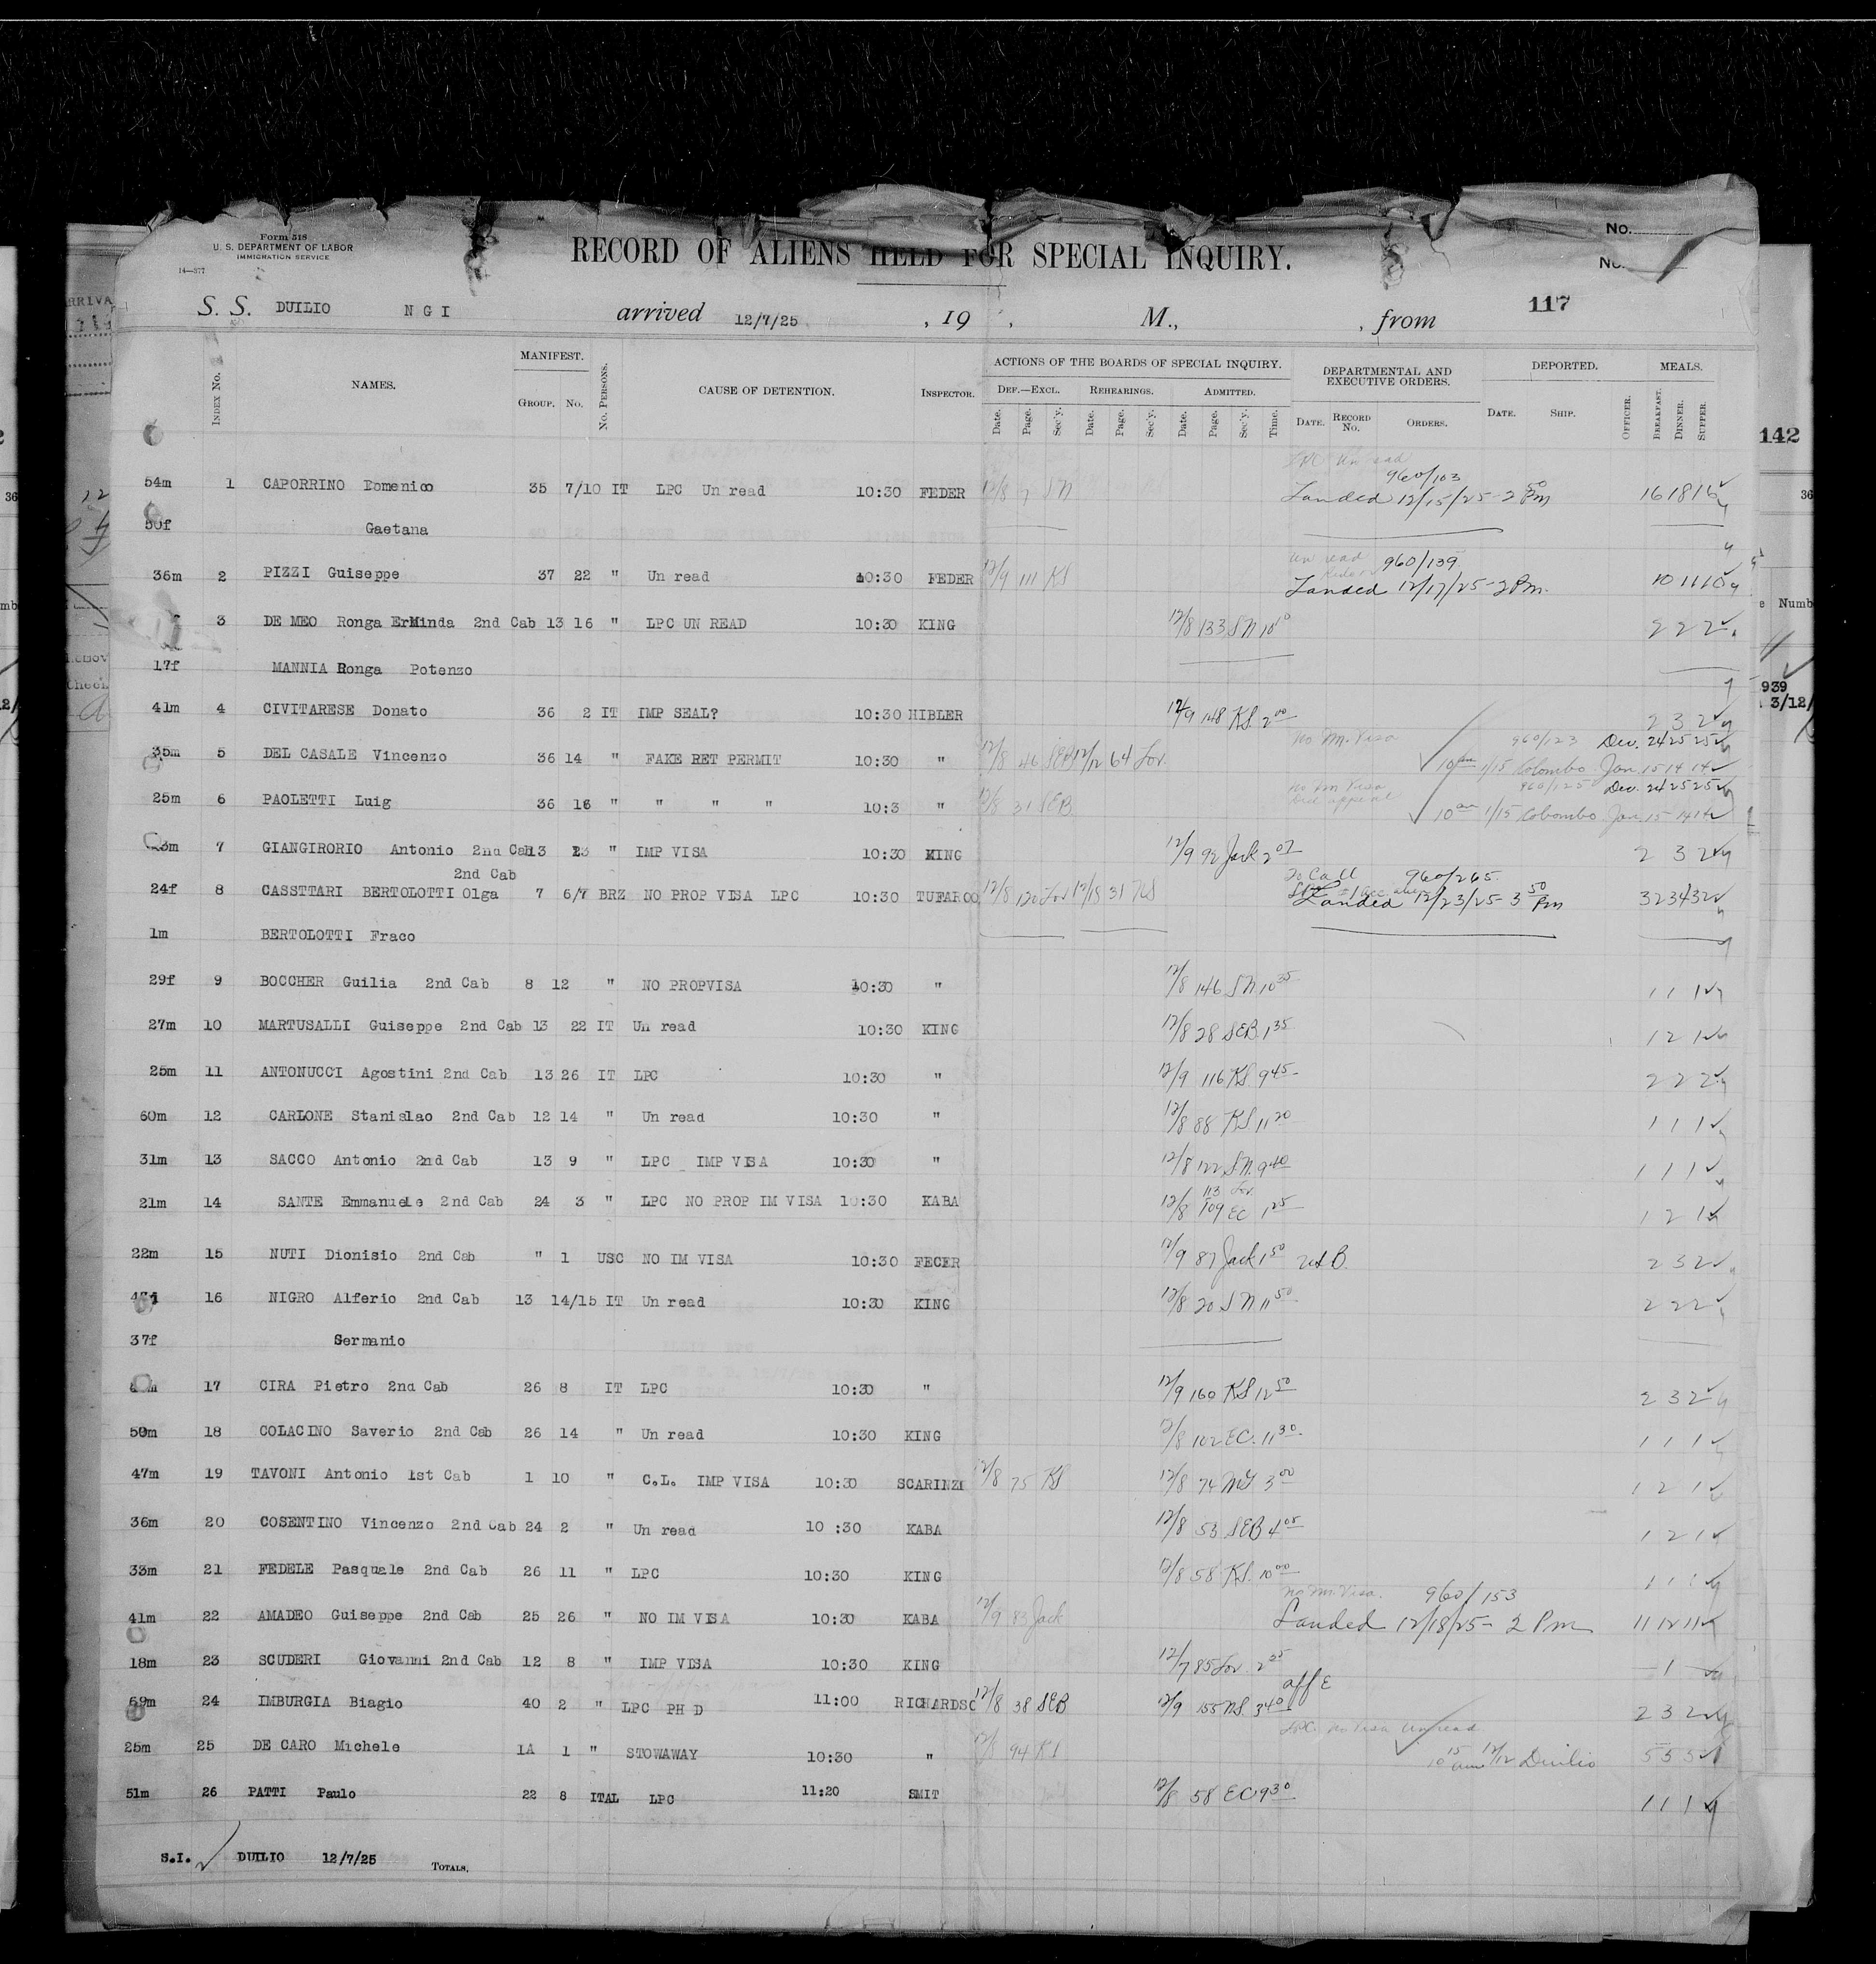 Form 518
U. S. DEPARTMENT OF LABOR
IMMIGRATION SERVICE
14—377
RECORD OF ALIENS HELD FOR SPECIAL INQUIRY.
No.
No.
S. S. DUILIO N G I arrived 12/7/25 , 19 , M., , from 117
INDEX No. NAMES. MANIFEST. GROUP. No. No. PERSONS. CAUSE OF DETENTION. INSPECTOR. ACTIONS OF THE BOARDS OF SPECIAL INQUIRY. DEPARTMENTAL AND EXECUTIVE ORDERS. DEPORTED. MEALS.
DEF.—EXCL. REHEARINGS. ADMITTED.
Date. Page. Sec'y. Date. Page. Sec'y. Date. Page. Sec'y. Time. DATE. RECORD No. ORDERS. DATE. SHIP. OFFICER. BREAKFAST. DINNER. SUPPER.
142
960/103
54m 1 CAPORRINO Domenico 35 7/10 IT LPC Un read 10:30 FEDER 12/8 7 SN Landed 12/15/25 - 2 50 Pm 16 18 16
50f Gaetana
Un read 960/139
36m 2 PIZZI Guiseppe 37 22 " Un read 10:30 FEDER 12/9 111 KS Landed 12/17/25 - 2 Pm. 10 11 10
3 DE MEO Ronga ErMinda 2nd Cab 13 16 " LPC UN READ 10:30 KING 12/8 133 SN 2 2 2
17f MANNIA Ronga Potenzo
41m 4 CIVITARESE Donato 36 2 IT IMP SEAL? 10:30 HIBLER 12/9 148 KS 2 00 2 3 2
no Im. Visa 960/123 Dec. 24 25 25
35m 5 DEL CASALE Vincenzo 36 14 " FAKE RET PERMIT 10:30 " 12/8 46 SEB 12/12 64 Lor. 10 am 1/15 Colombo Jan. 15 14 14
no Im Visa 960/125 Dec. 24 25 25
25m 6 PAOLETTI Luig 36 16 " " " " 10:3 " 12/8 31 SEB 10 am 1/15 Colombo Jan 15 14 14
7 GIANGIRORIO Antonio 2nd Cab 13 23 " IMP VISA 10:30 KING 12/9 92 Jack 2 07 2 3 2
2nd Cab 960/265
24f 8 CASSTTARI BERTOLOTTI Olga 7 6/7 BRZ NO PROP VISA LPC 10:30 TUFAROO 12/8 120 Lor 12/18 31 KS Landed 12/23/25 - 3 50 Pm 32 34 32
1m BERTOLOTTI Fraco
29f 9 BOCCHER Guilia 2nd Cab 8 12 " NO PROPVISA 10:30 " 12/8 146 SN 10 35 1 1 1
27m 10 MARTUSALLI Guiseppe 2nd Cab 13 22 IT Un read 10:30 KING 12/8 28 SEB 1 35 1 2 1
25m 11 ANTONUCCI Agostini 2nd Cab 13 26 IT LPC 10:30 " 12/9 116 KS 9 45 2 2 2
60m 12 CARLONE Stanislao 2nd Cab 12 14 " Un read 10:30 " 12/8 88 KS 11 20 1 1 1
31m 13 SACCO Antonio 2nd Cab 13 9 " LPC IMP VISA 10:30 " 12/8 122 SN. 9 40 1 1 1
113 Lor
21m 14 SANTE Emmanuele 2nd Cab 24 3 " LPC NO PROP IM VISA 10:30 KABA 12/8 109 EC 1 25 1 2 1
22m 15 NUTI Dionisio 2nd Cab " 1 USC NO IM VISA 10:30 FECER 12/9 87 Jack 1 50 2 3 2
16 NIGRO Alferio 2nd Cab 13 14/15 IT Un read 10:30 KING 12/8 20 SN 11 50 2 2 2
37f Sermanio
17 CIRA Pietro 2nd Cab 26 8 IT LPC 10:30 " 12/9 160 KS 12 50 2 3 2
50m 18 COLACINO Saverio 2nd Cab 26 14 " Un read 10:30 KING 12/8 102 EC. 11 30 1 1 1
47m 19 TAVONI Antonio 1st Cab 1 10 " C.L. IMP VISA 10:30 SCARINZI 12/8 75 KS 12/8 74 3 00 1 2 1
36m 20 COSENTINO Vincenzo 2nd Cab 24 2 " Un read 10 :30 KABA 12/8 53 SEB 4 05 1 2 1
33m 21 FEDELE Pasquale 2nd Cab 26 11 " LPC 10:30 KING 12/8 58 KS. 10 00 1 1 1
no Im. Visa. 960/153
41m 22 AMADEO Guiseppe 2nd Cab 25 26 " NO IM VISA 10:30 KABA 12/9 83 Jack Landed 12/18/25 - 2 Pm 11 12 11
18m 23 SCUDERI Giovanni 2nd Cab 12 8 " IMP VISA 10:30 KING 12/7 85 Lor. 1
aff E
69m 24 IMBURGIA Biagio 40 2 " LPC PH D 11:00 RICHARDSO 12/8 38 SEB 12/9 155 3 40 2 3 2
LPC. no Visa Unread
25m 25 DE CARO Michele 1A 1 " STOWAWAY 10:30 " 12/8 94 KS 10 15 am 12/12 Duilio 5 5 5
51m 26 PATTI Paulo 22 8 ITAL LPC 11:20 SMIT 12/8 58 EC 9 30 1 1 1
S.I. DUILIO 12/7/25 TOTALS.